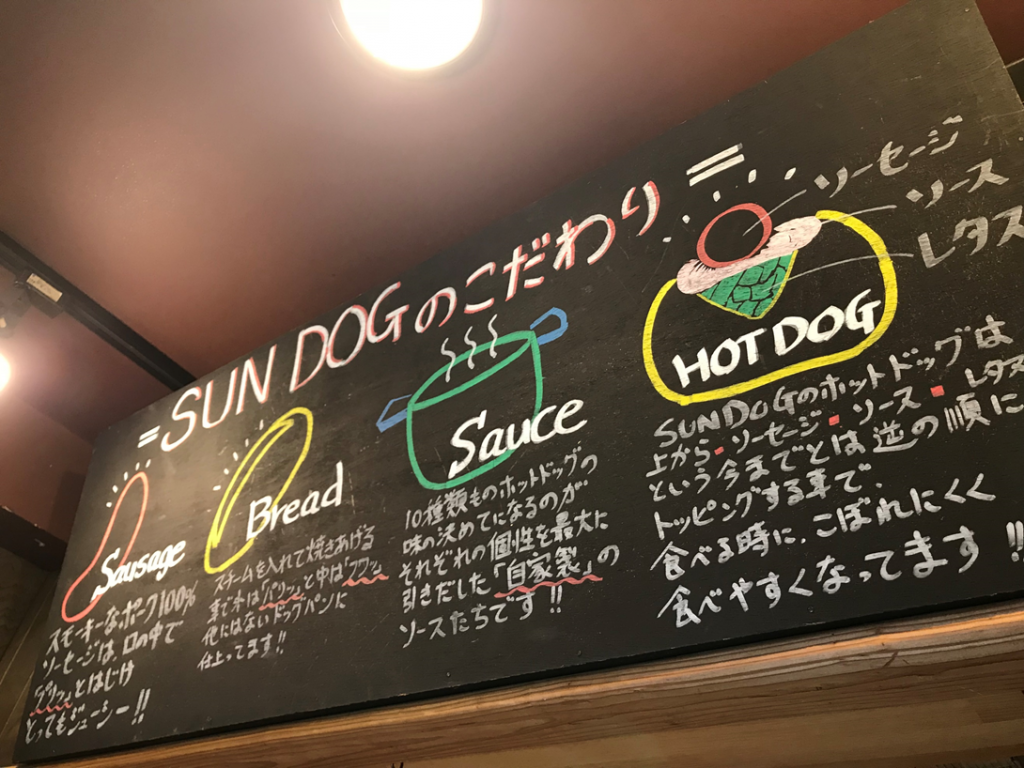 =SUN DOGのこだわり=
Sausage
スモーキーなポーク100%
ソーセージは口の中で
とはじけ
とってもジューシー!!
Bread
スチームを入れて焼きあげる
事で外は「パリッ」と中は「フワッ」
他にはないドッグパンに
仕上ってます!!
Sauce
10種類ものホットドッグの
味の決めてになるのが
それぞれの個性を最大に
引きだした「自家製」の
ソースたちです!!
ソーセージ
ソース
レタス
HOT DOG
SUNDOGのホットドッグは
上から・ソーセージ・ソース・レタス
という今までとは逆の順に
トッピングする事で、
食べる時に、こぼれにくく
食べやすくなってます!!